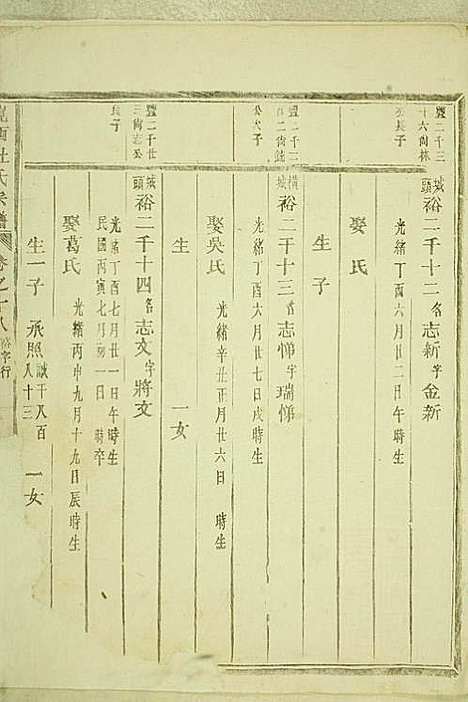 豐二千三
十六尚林
公長子
城頭 裕二千十二 名志新 字金新
光緒丁酉六月廿二日午時生
娶 氏
生 子
豐二千二
百二尚鏡
公六子
橫城 裕二千十三 名志悌 字瑞悌
光緒丁酉六月廿七日戌時生
娶吳氏 光緒辛丑正月廿六日 時生
生 一女
豐二千廿
三尚志公
長子
城頭 裕二千十四 名志文 字將文
光緒丁酉七月廿一日午時生
民國丙寅七月初一日 時卒
娶葛氏 光緒丙申九月十九日辰時生
生一子 承照 誠千八百八十三 一女
杜氏宗譜 卷之十八 裕字行